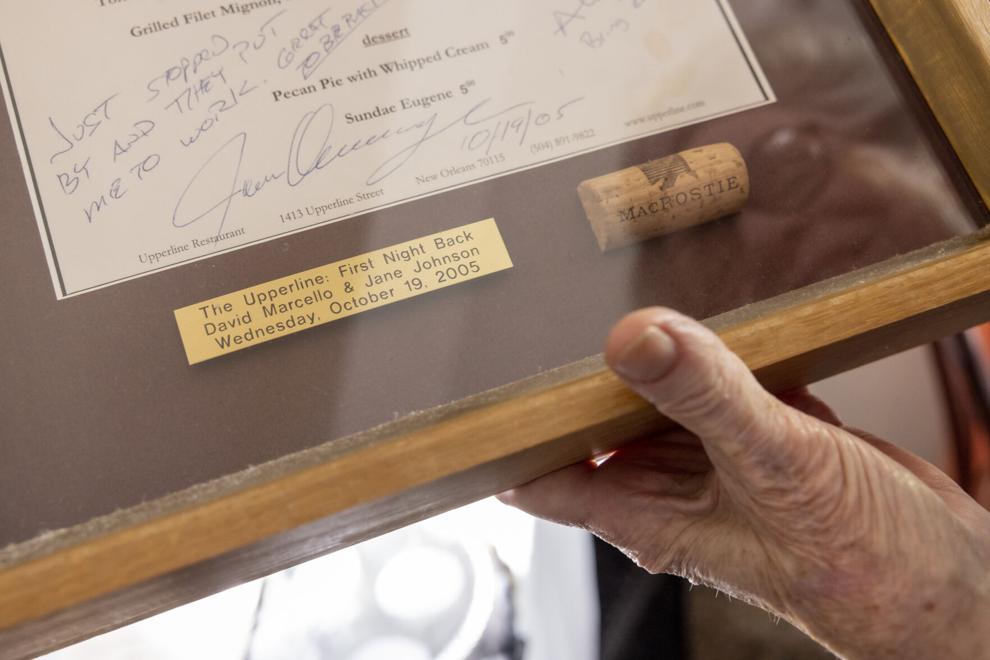 Grilled Filet Mignon,
dessert
Pecan Pie with Whipped Cream 5⁰⁰
Sundae Eugene 5⁰⁰
JUST STOPPED
BY AND THEY PUT
ME TO WORK. GREAT
10/19/05
Upperline Restaurant 1413 Upperline Street New Orleans 70115 (504) 891-9822 www.upperline.com
MACROSTIE
The Upperline: First Night Back
David Marcello & Jane Johnson
Wednesday, October 19, 2005